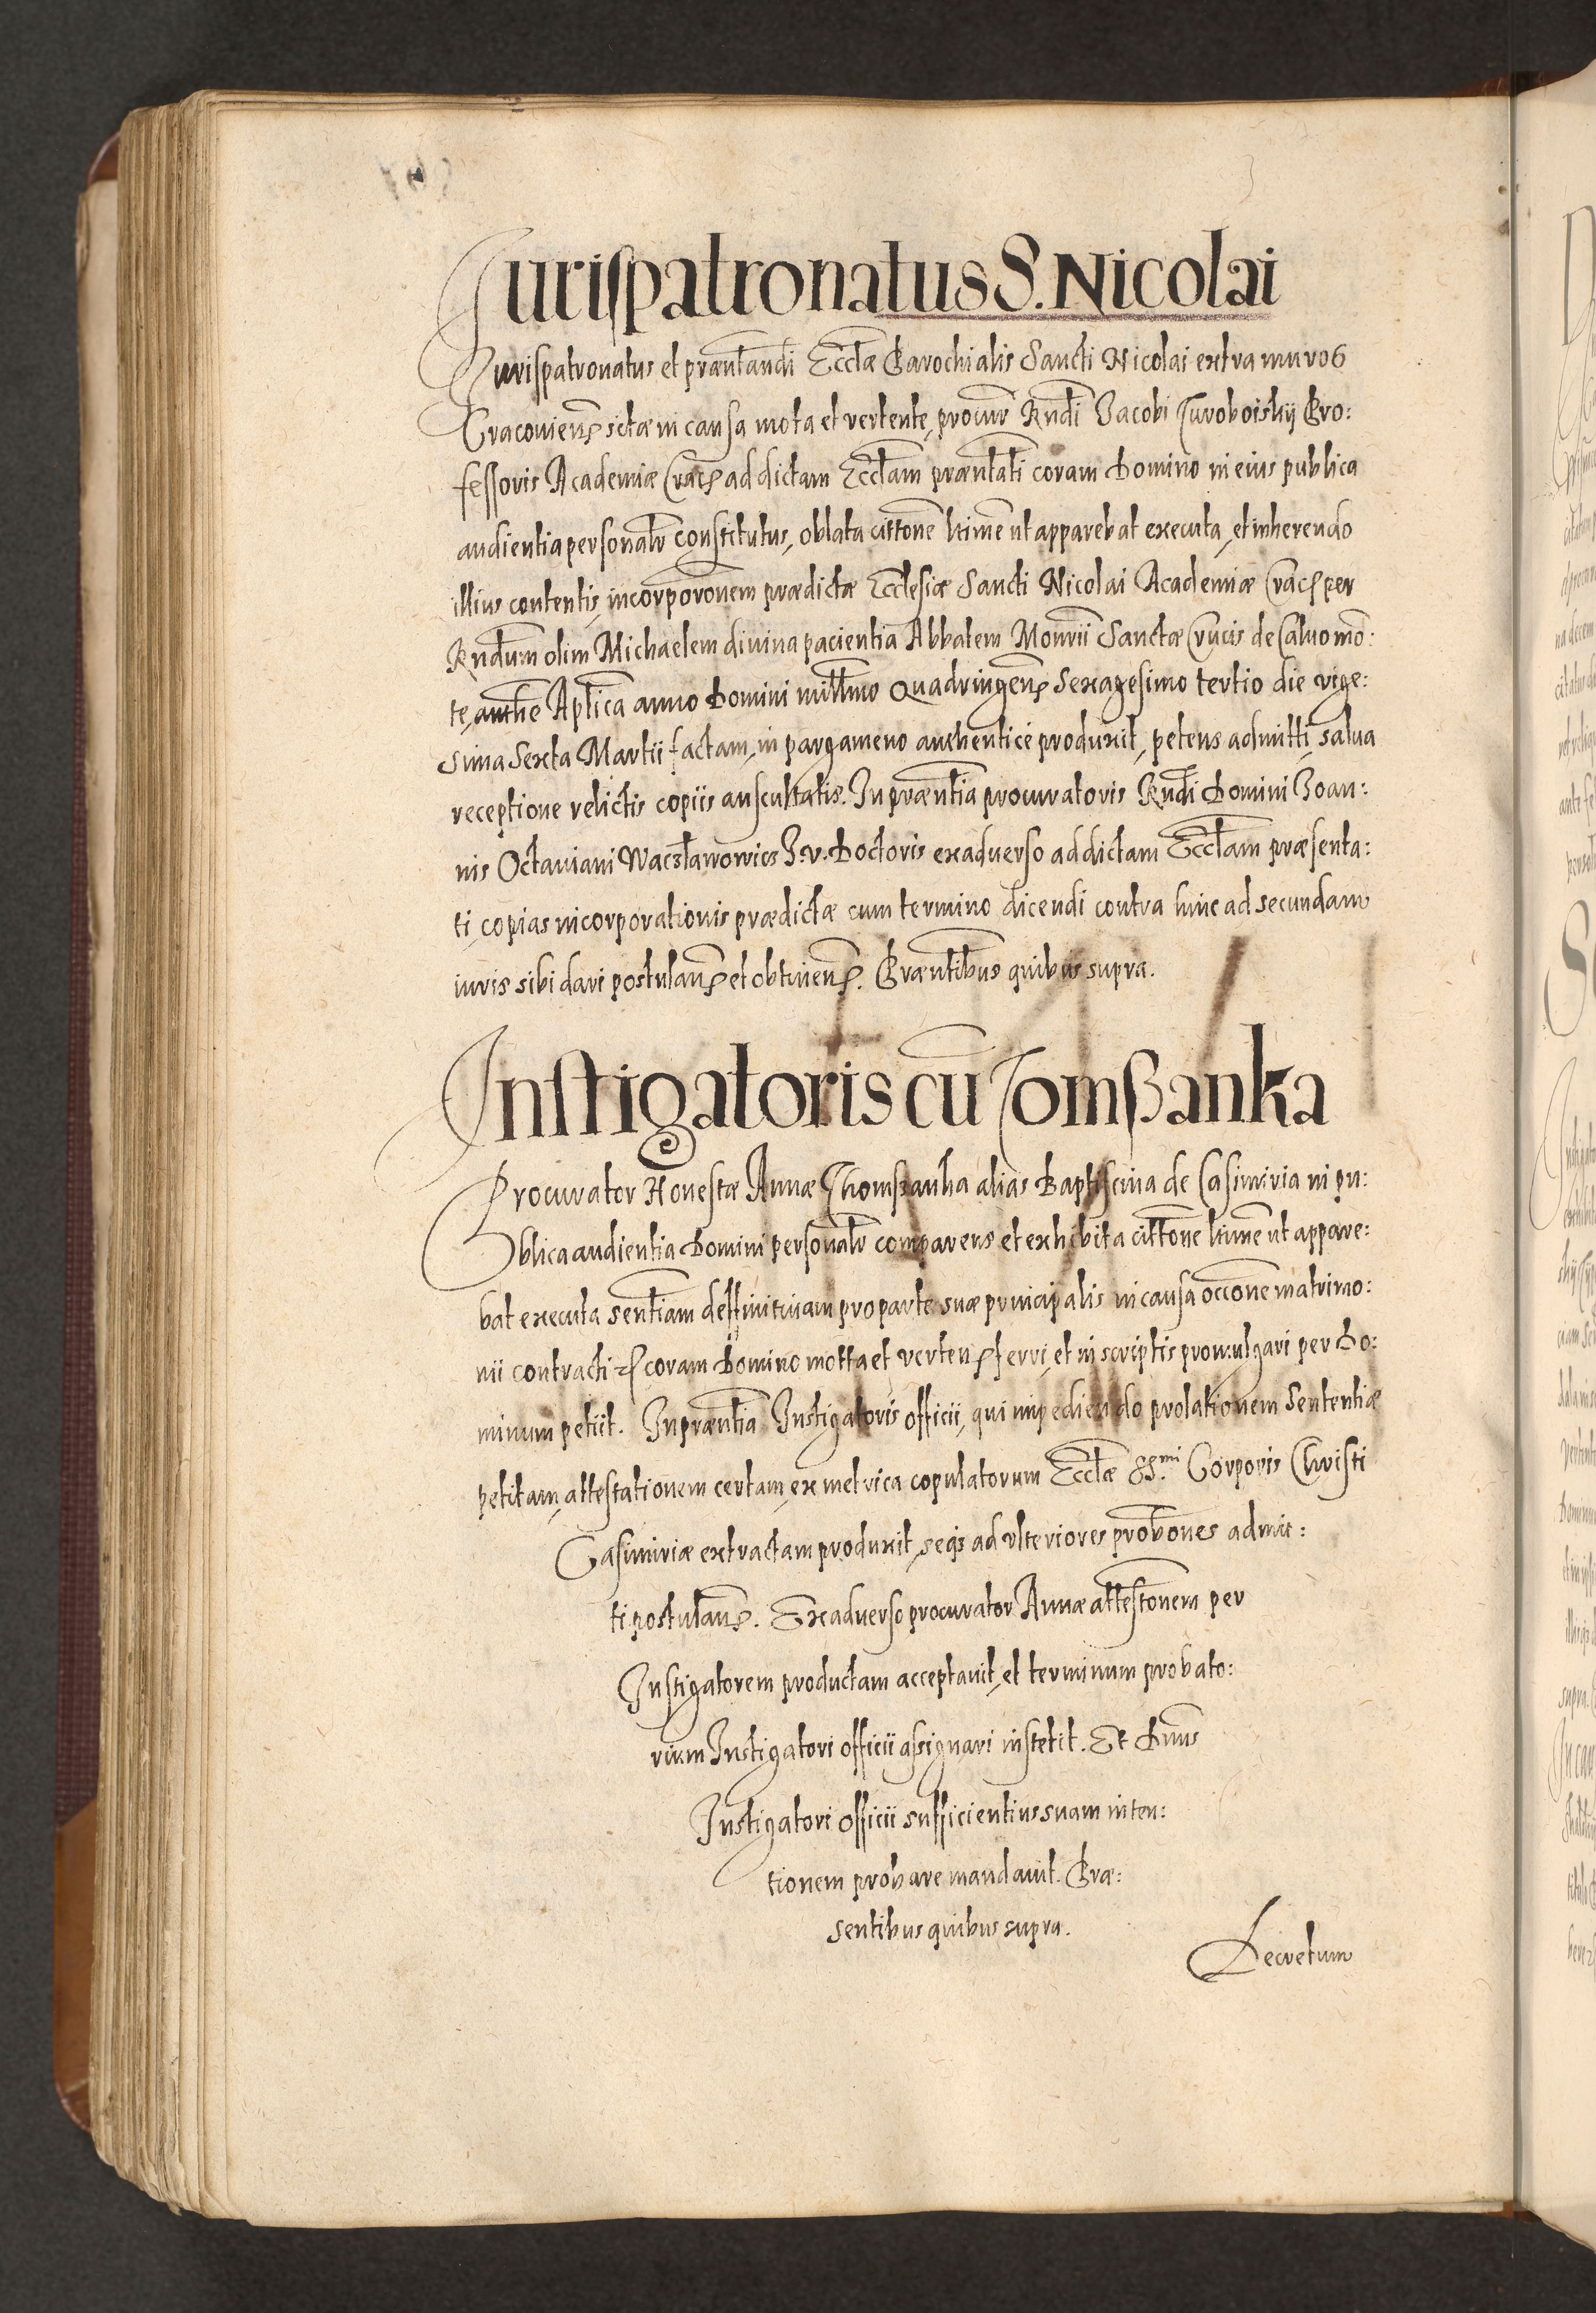 Jurispatronatus S. Nicolai
Jurispatronatus et præntandi Ecclæ Parochialis Sancti Nicolai extra muros
Cracouien sitæ in causa mota et vertente, procur Rndi Jacobi Turoboiskij Pro:
fessoris Academiæ Crac ad dictam Ecclam præntati coram Domino in eius publica
audientia personalr constitutus, oblata cittone ltime ut apparebat executa, et inherendo
illius contentis, incorporonem prædictæ Ecclesiæ Sancti Nicolai Academiæ Crac per
Rndum olim Michaelem diuina pacientia Abbatem Monrii Sanctæ Crucis de Caluo mo:
te, authe Aplica anno Domini millmo Quadringen Sexagesimo tertio die vige:
sima Sexta Martii factam, in pargameno authenticè produxit, petens admitti, salua
receptione relictis copiis auscultatis. In præntia procuratoris Rndi Domini Joan:
nis Octauiani Wacsławowics J. v. Doctoris exaduerso ad dictam Ecclam præsenta:
ti, copias incorporationis prædictæ cum termino dicendi contra hinc ad secundam
iuris sibi dari postulan et obtinen. Præntibus quibus supra.
Instigatoris cū Tomßanka
Procurator Honestæ Annæ Thomßanka alias Baptiscina de Casimiria in pu:
blica audientia Domini personalr comparens et exhibita cittone ltime ut appare:
bat executa sentiam deffinitiuam pro parte suæ principalis in causa occone matrimo:
nii contracti coram Domino motta et verten ferri, et in scriptis promulgari per Do:
minum petiit. In præntia Instigatoris officii, qui impediendo prolationem Sententiæ
petitam, attestationem certam, ex metrica copulatorum Ecclæ SS.mi Corporis Christi
Casimiriæ extractam produxit, seqs ad vlteriores probones admit:
ti postulan. Exaduerso procurator Annæ attestonem per
Instigatorem productam acceptauit, et terminum probato:
rium Instigatori officii assignari institit. Et Dnus
Instigatori officii sufficientius suam inten:
tionem probare mandauit. Præ:
sentibus quibus supra.
Decretum